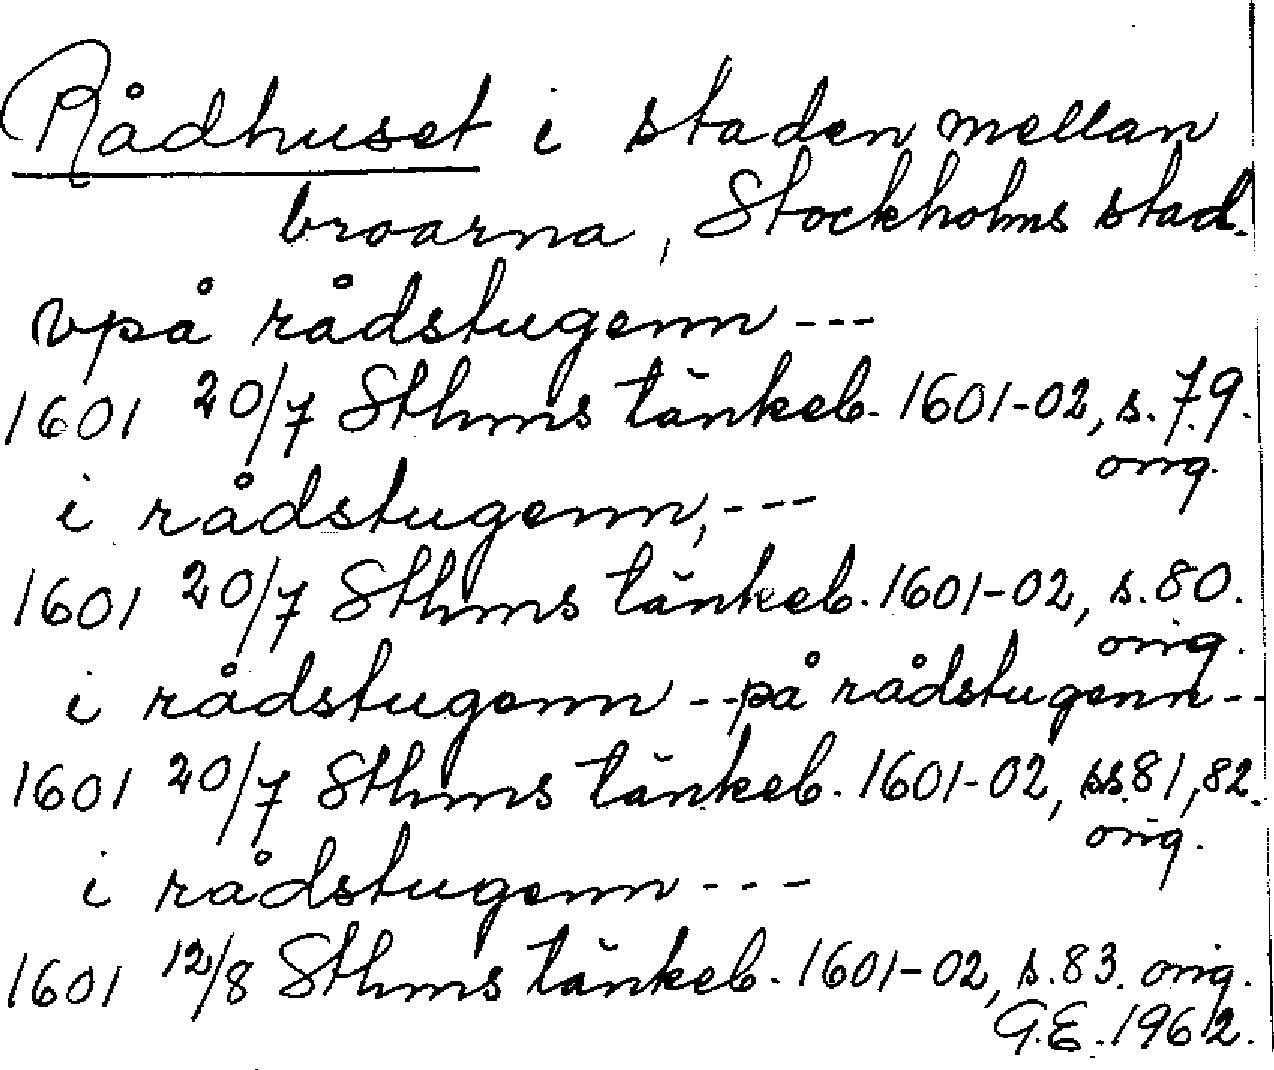 Rådhuset i staden mellan
broarna, Stockholms stad.
vpå rådstugenn ---
1601 20/7 Sthms tänkeb. 1601-02, s. 79.
orig.
i rådstugenn, ---
1601 20/7 Sthms tänkeb. 1601-02, s. 80.
orig.
i rådstugenn -- på rådstugenn --
1601 20/7 Sthms tänkeb. 1601-02, ss. 81, 82.
orig.
i rådstugenn ---
1601 12/8 Sthms tänkeb. 1601-02, s. 83. orig.
G.E. 1962.